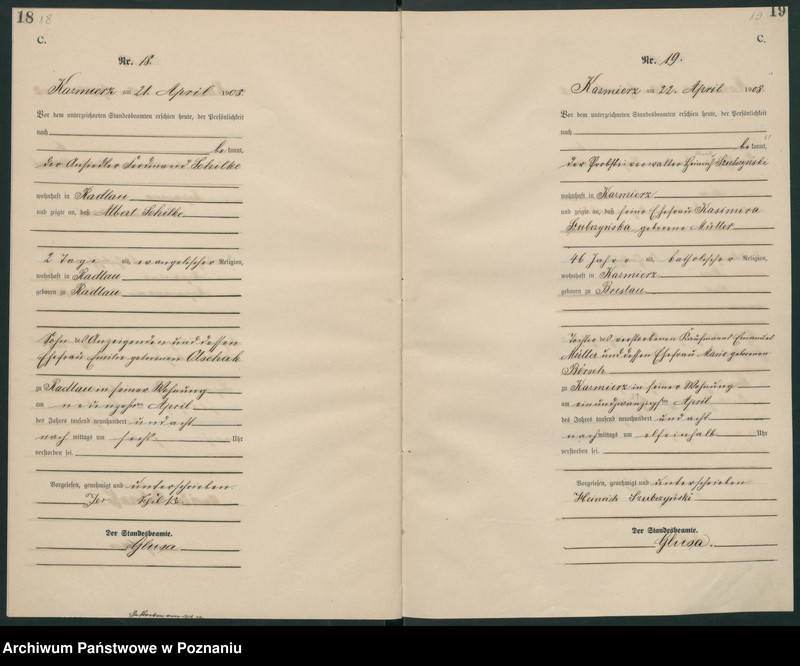 18 18
C.
Nr. 18.
Kazmierz am 21. April 1908.
Vor dem unterzeichneten Standesbeamten erschien heute, der Persönlichkeit
nach
be kannt,
der Ansiedler Ferdinand Schilke
wohnhaft in Radlau
und zeigte an, daß Albert Schilke
2 Tage alt, evangelischer Religion,
wohnhaft in Radlau
geboren zu Radlau
Sohn des Anzeigenden und dessen
Ehefrau Emilie geborenen
zu Radlau in seiner Wohnung
am neunzehnten April
des Jahres tausend neunhundert und acht
nach mittags um sechs Uhr
verstorben sei.
Vorgelesen, genehmigt und unterschrieben
Der Standesbeamte.
Glusa
19 19
C.
Nr. 19.
Kazmierz am 22. April 1908.
Vor dem unterzeichneten Standesbeamten erschien heute, der Persönlichkeit
nach
be kannt,
der Probsteiverwalter Heinrich Szubczyński
wohnhaft in Kazmierz
und zeigte an, daß seine Ehefrau Kasimira
Szubczyńska geborene Müller
46 Jahre alt, katholischer Religion,
wohnhaft in Kazmierz
geboren zu Breslau
Tochter des verstorbenen Kaufmanns Emanuel
Müller und dessen Ehefrau Marie geborenen
zu Kazmierz in seiner Wohnung
am einundzwanzigsten April
des Jahres tausend neunhundert und acht
nach mittags um elfeinhalb Uhr
verstorben sei.
Vorgelesen, genehmigt und unterschrieben
Heinrich Szubczyński
Der Standesbeamte.
Glusa.
Archiwum Państwowe w Poznaniu